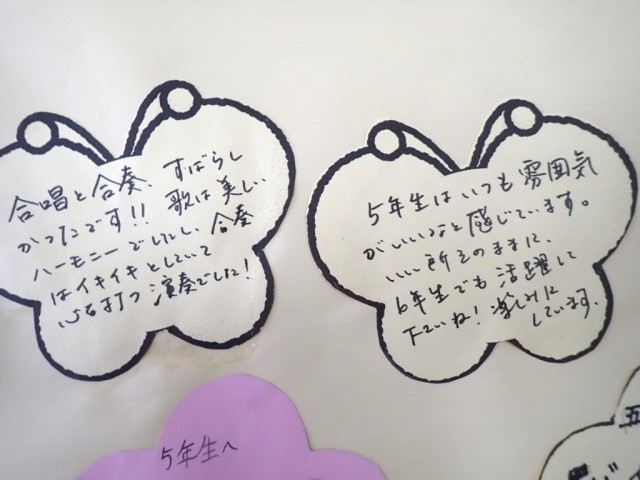 合唱と合奏、すばらし
かったです!! 歌は美しい
ハーモニーでしたし、合奏
はイキイキとしていて
心を打つ演奏でした!
5年生はいつも雰囲気
がいいなと感じています。
いい所そのままに、
6年生でも活躍して
下さいね!楽しみに
しています。
5年生へ
五